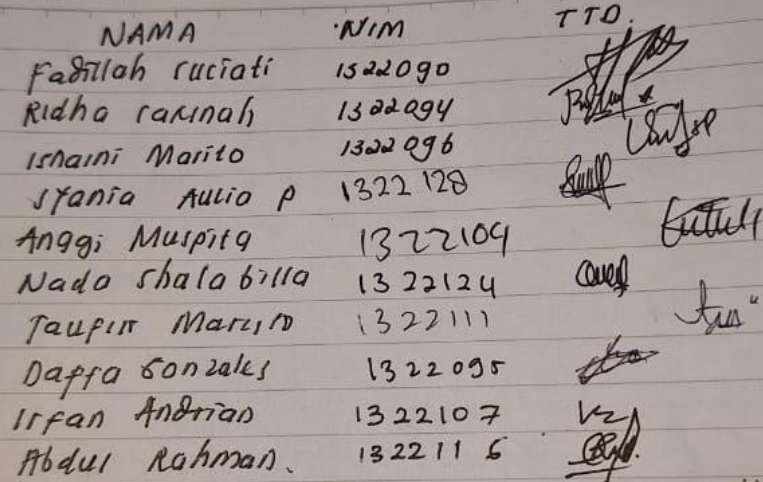 NAMA NIM TTD.
Fadillah suciati 1322090
Ridha sakinah 1322094
Isnaini Marito 1322096
Syania Aulia P 1322128
Anggi Muspita 1322109
Nada shalabilla 1322124
Taufik 1322111
Daffa Gonzales 1322095
Irfan Andrian 1322107
Abdul Rahman. 1322116